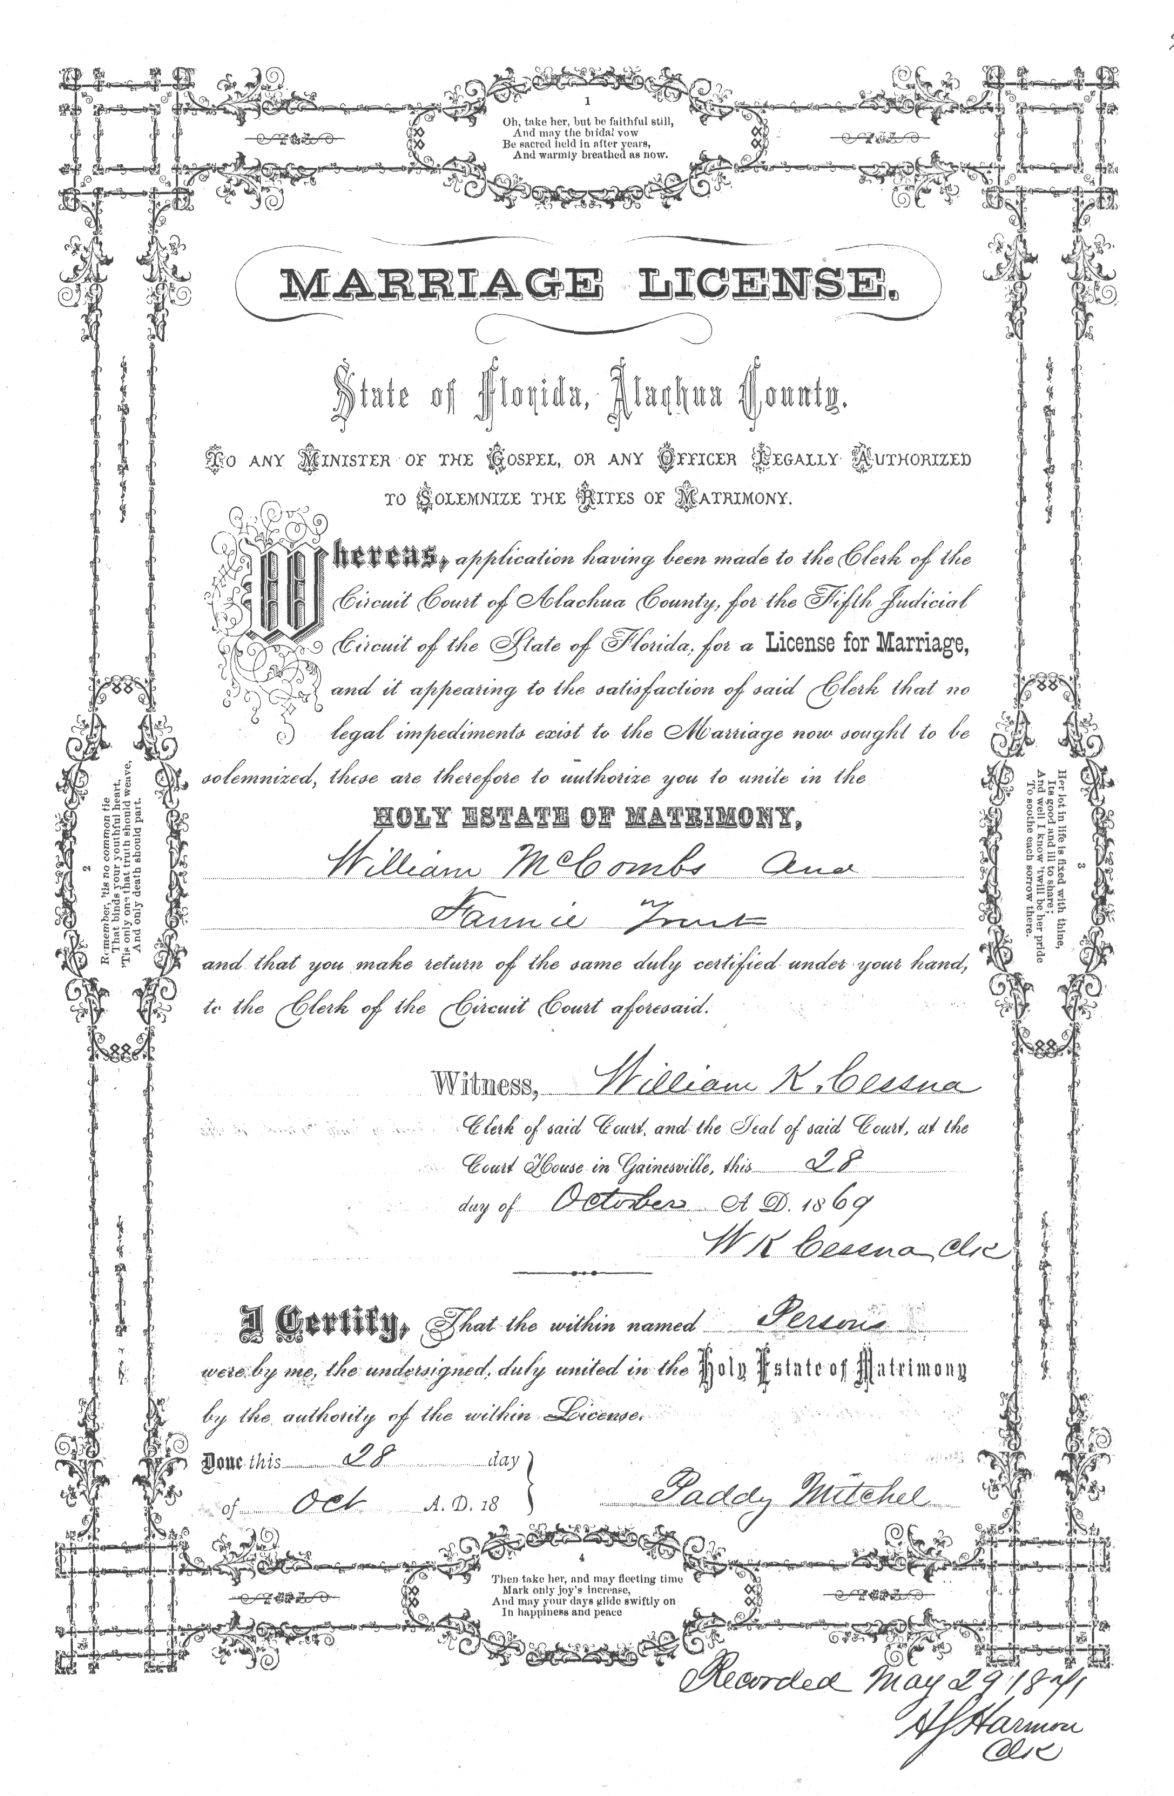 1
Oh, take her, but be faithful still,
And may the bridal vow
Be sacred held in after years,
And warmly breathed as now.
MARRIAGE LICENSE.
State of Florida, Alachua County.
TO ANY MINISTER OF THE GOSPEL, OR ANY OFFICER LEGALLY AUTHORIZED
TO SOLEMNIZE THE RITES OF MATRIMONY.
Whereas, application having been made to the Clerk of the
Circuit Court of Alachua County, for the Fifth Judicial
Circuit of the State of Florida, for a License for Marriage,
and it appearing to the satisfaction of said Clerk that no
legal impediments exist to the Marriage now sought to be
solemnized, these are therefore to authorize you to unite in the
HOLY ESTATE OF MATRIMONY,
William McCombs and
Fannie
and that you make return of the same duly certified under your hand,
to the Clerk of the Circuit Court aforesaid.
2
Remember, 'tis no common tie
That binds your youthful heart,
'Tis only one that truth should weave,
And only death should part.
3
Her lot in life is fixed with thine,
Its good and ill to share;
And well I know 'twill be her pride
To soothe each sorrow there.
Witness, William K. Cessna
Clerk of said Court, and the Seal of said Court, at the
Court House in Gainesville, this 28
day of October A D. 1869
W K Cessna, Clk
I Certify, That the within named Persons
were by me, the undersigned, duly united in the Holy Estate of Matrimony
by the authority of the within License.
Done this 28 day
of Oct A. D. 18
Paddy Mitchel
4
Then take her, and may fleeting time
Mark only joy's increase,
And may your days glide swiftly on
In happiness and peace
Recorded May 29 1871
Harmon
Clk